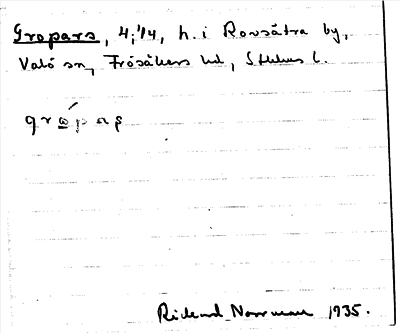 Gropars, 4:14, h. i Rovsätra by,
Valö sn, Frösåkers hd, Sthlms l.
grɷ́pas
Rickard Norrman 1935.